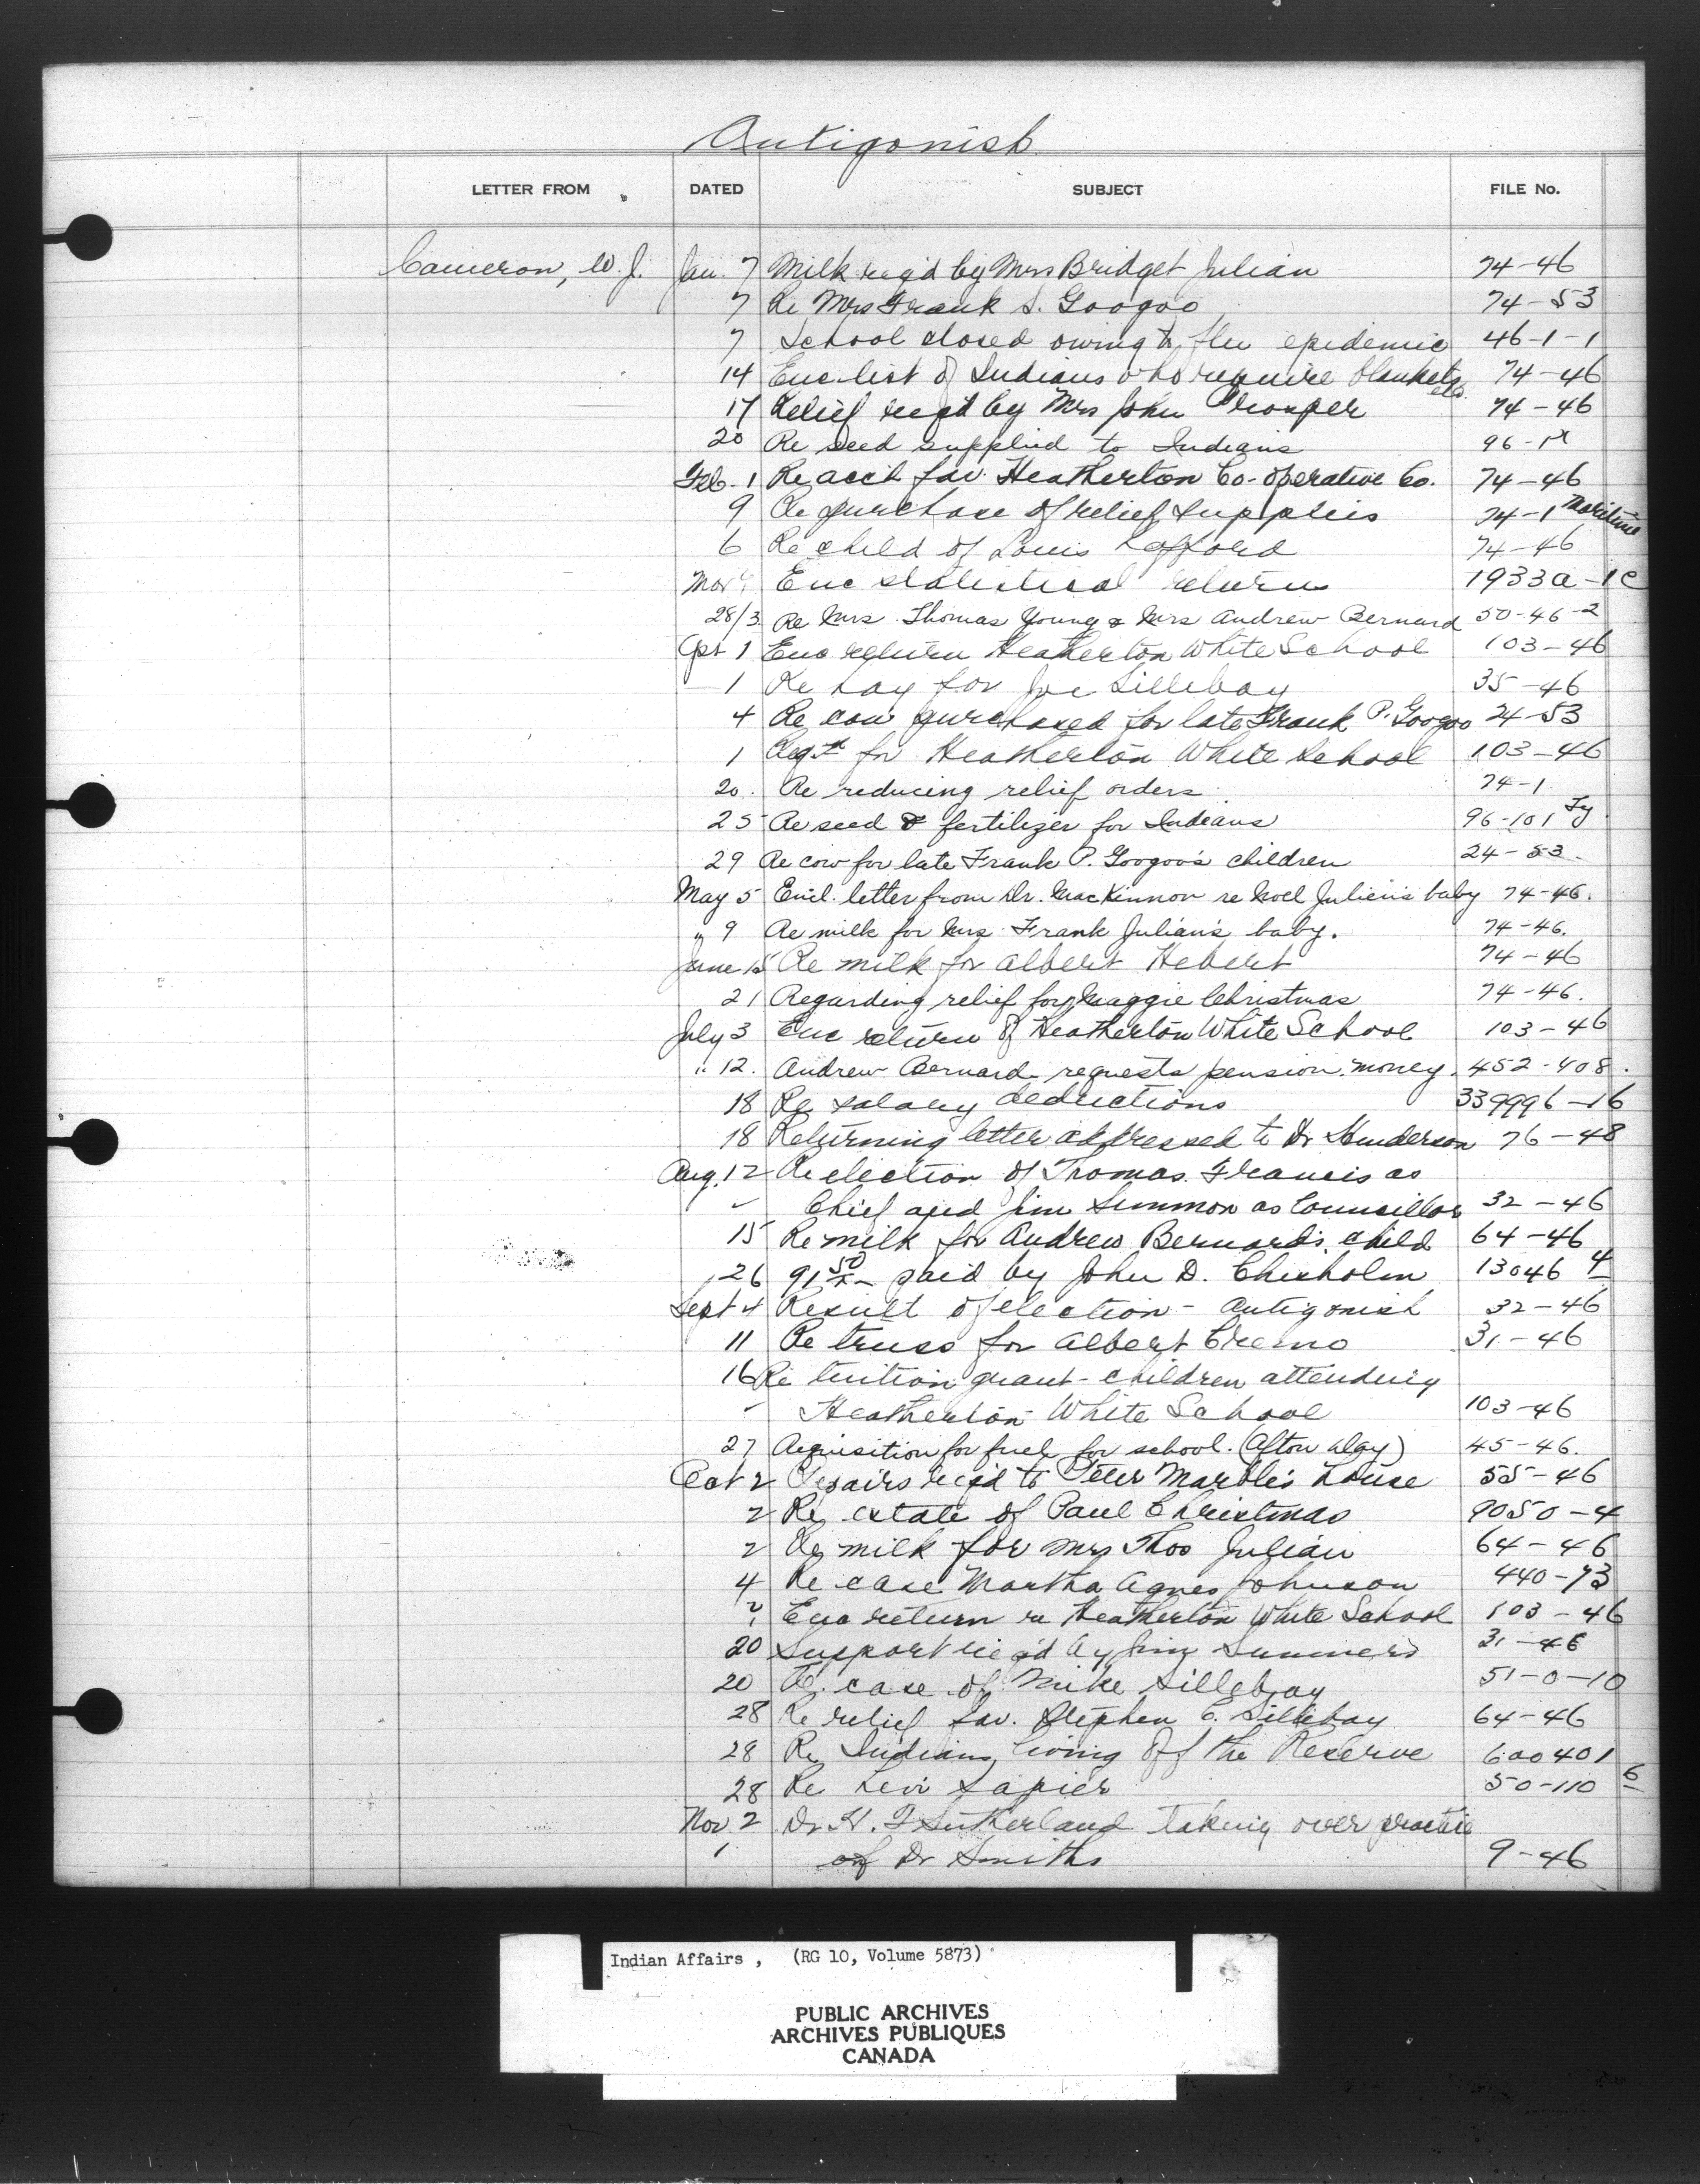 Antigonish
LETTER FROM DATED SUBJECT FILE No.
Cameron, W. J. Jan. 7 Milk req'd by Mrs Bridget Julian 74-46
7 Re Mrs Frank S. Googoo 74-53
7 School closed owing to flu epidemic 46-1-1
14 Enc. list of Indians who require blankets etc. 74-46
17 Relief req'd by Mrs John Prosper 74-46
20 Re seed supplied to Indians 96-1
Feb. 1 Re acct fav. Heatherton Co-operative Co. 74-46
9 Re purchase of relief supplies 74-1 Maritime
6 Re child of Louis Lafford 74-46
Mar Enc statistical returns 1933a-1c
28/3 Re Mrs. Thomas Young & Mrs Andrew Bernard 50-46-2
Apr 1 Enc return Heatherton White School 103-46
1 Re hay for Joe Sillebay 35-46
4 Re cow purchased for late Frank P. Googoo 24-53
1 Reqn for Heatherton White School 103-46
20. Re reducing relief orders. 74-1
25 Re seed & fertilizer for Indians 96-101
29 Re cow for late Frank P. Googoo's children 24-53.
May 5 Encl. letter from Dr. MacKinnon re Noel Julien's baby 74-46.
" 9 Re milk for Mrs. Frank Julian's baby. 74-46.
June 15 Re milk for Albert Hebert 74-46
21 Regarding relief for Maggie Christmas 74-46.
July 3 Enc return of Heatherton White School 103-46
" 12. Andrew Bernard requests pension money. 452-408.
18 Re salary deductions 339996-16
18 Returning letter addressed to Dr Henderson 76-48
Aug. 12 Re election of Thomas Francis as
Chief and Jim Simmon as Councillor 32-46
15 Re milk for Andrew Bernard's child 64-46
26 91 50/x - paid by John D. Chisholm 13046 4
Sept 4 Result of election - Antigonish 32-46
11 Re truss for Albert Cremo 31-46
16 Re tuition grant - children attending
Heatherton White School 103-46
27 Requisition for fuel for school. (Afton Day) 45-46.
Oct 2 Repairs req'd to Peter Marble's house 55-46
2 Re estate of Paul Christmas 9050-4
2 Re milk for Mrs Thos Julian 64-46
4 Re case Martha Agnes Johnson 440-73
Enc return re Heatherton White School 103-46
20 Support req'd by Jim Summers 31-46
20 Re. case of Mike Sillebay 51-0-10
28 Re relief fav. Stephen C. Sillibay 64-46
28 Re Indians living off the Reserve 600401
28 Re Levi Sapier 50-110 6
Nov. 2 Dr H. F Sutherland taking over practice
of Dr Smiths 9-46
Indian Affairs , (RG 10, Volume 5873)
PUBLIC ARCHIVES
ARCHIVES PUBLIQUES
CANADA